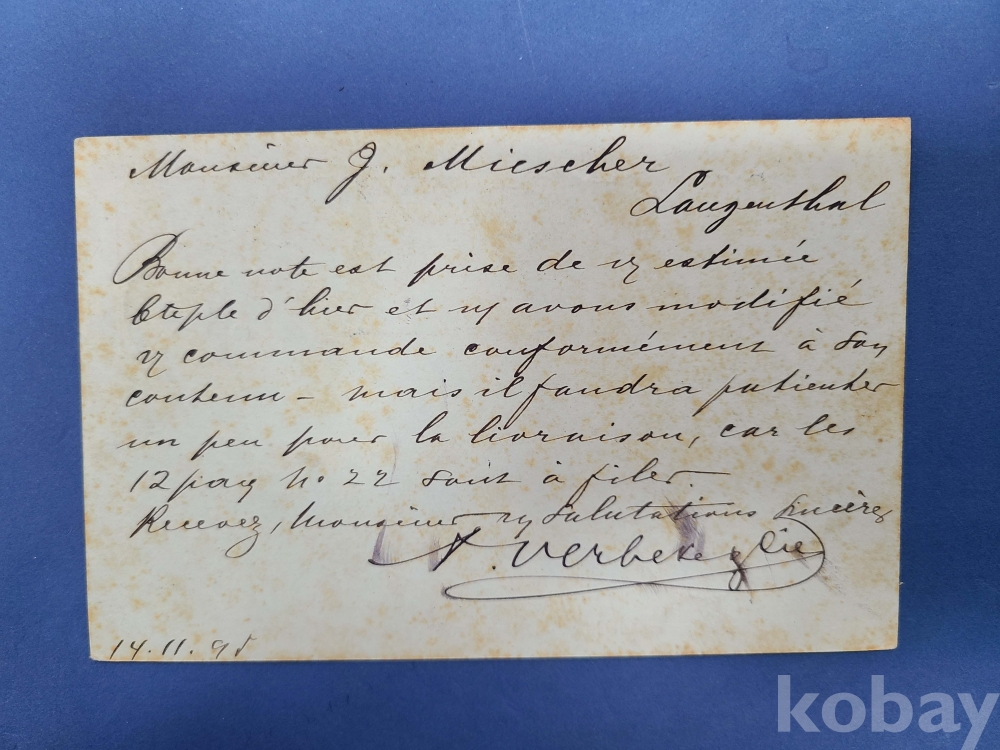 Monsieur J. Miescher
Langenthal
Bonne note est prise de v/ estimée
d'hier et n/ avons modifié
v/ commande conformément à son
contenu – mais il faudra patienter
un peu pour la livraison, car les
12 paq No 22 sont à filer.
Recevez, Monsieur, n/ salutations sincères
A. Verbeke & Cie
14.11.95
kobay